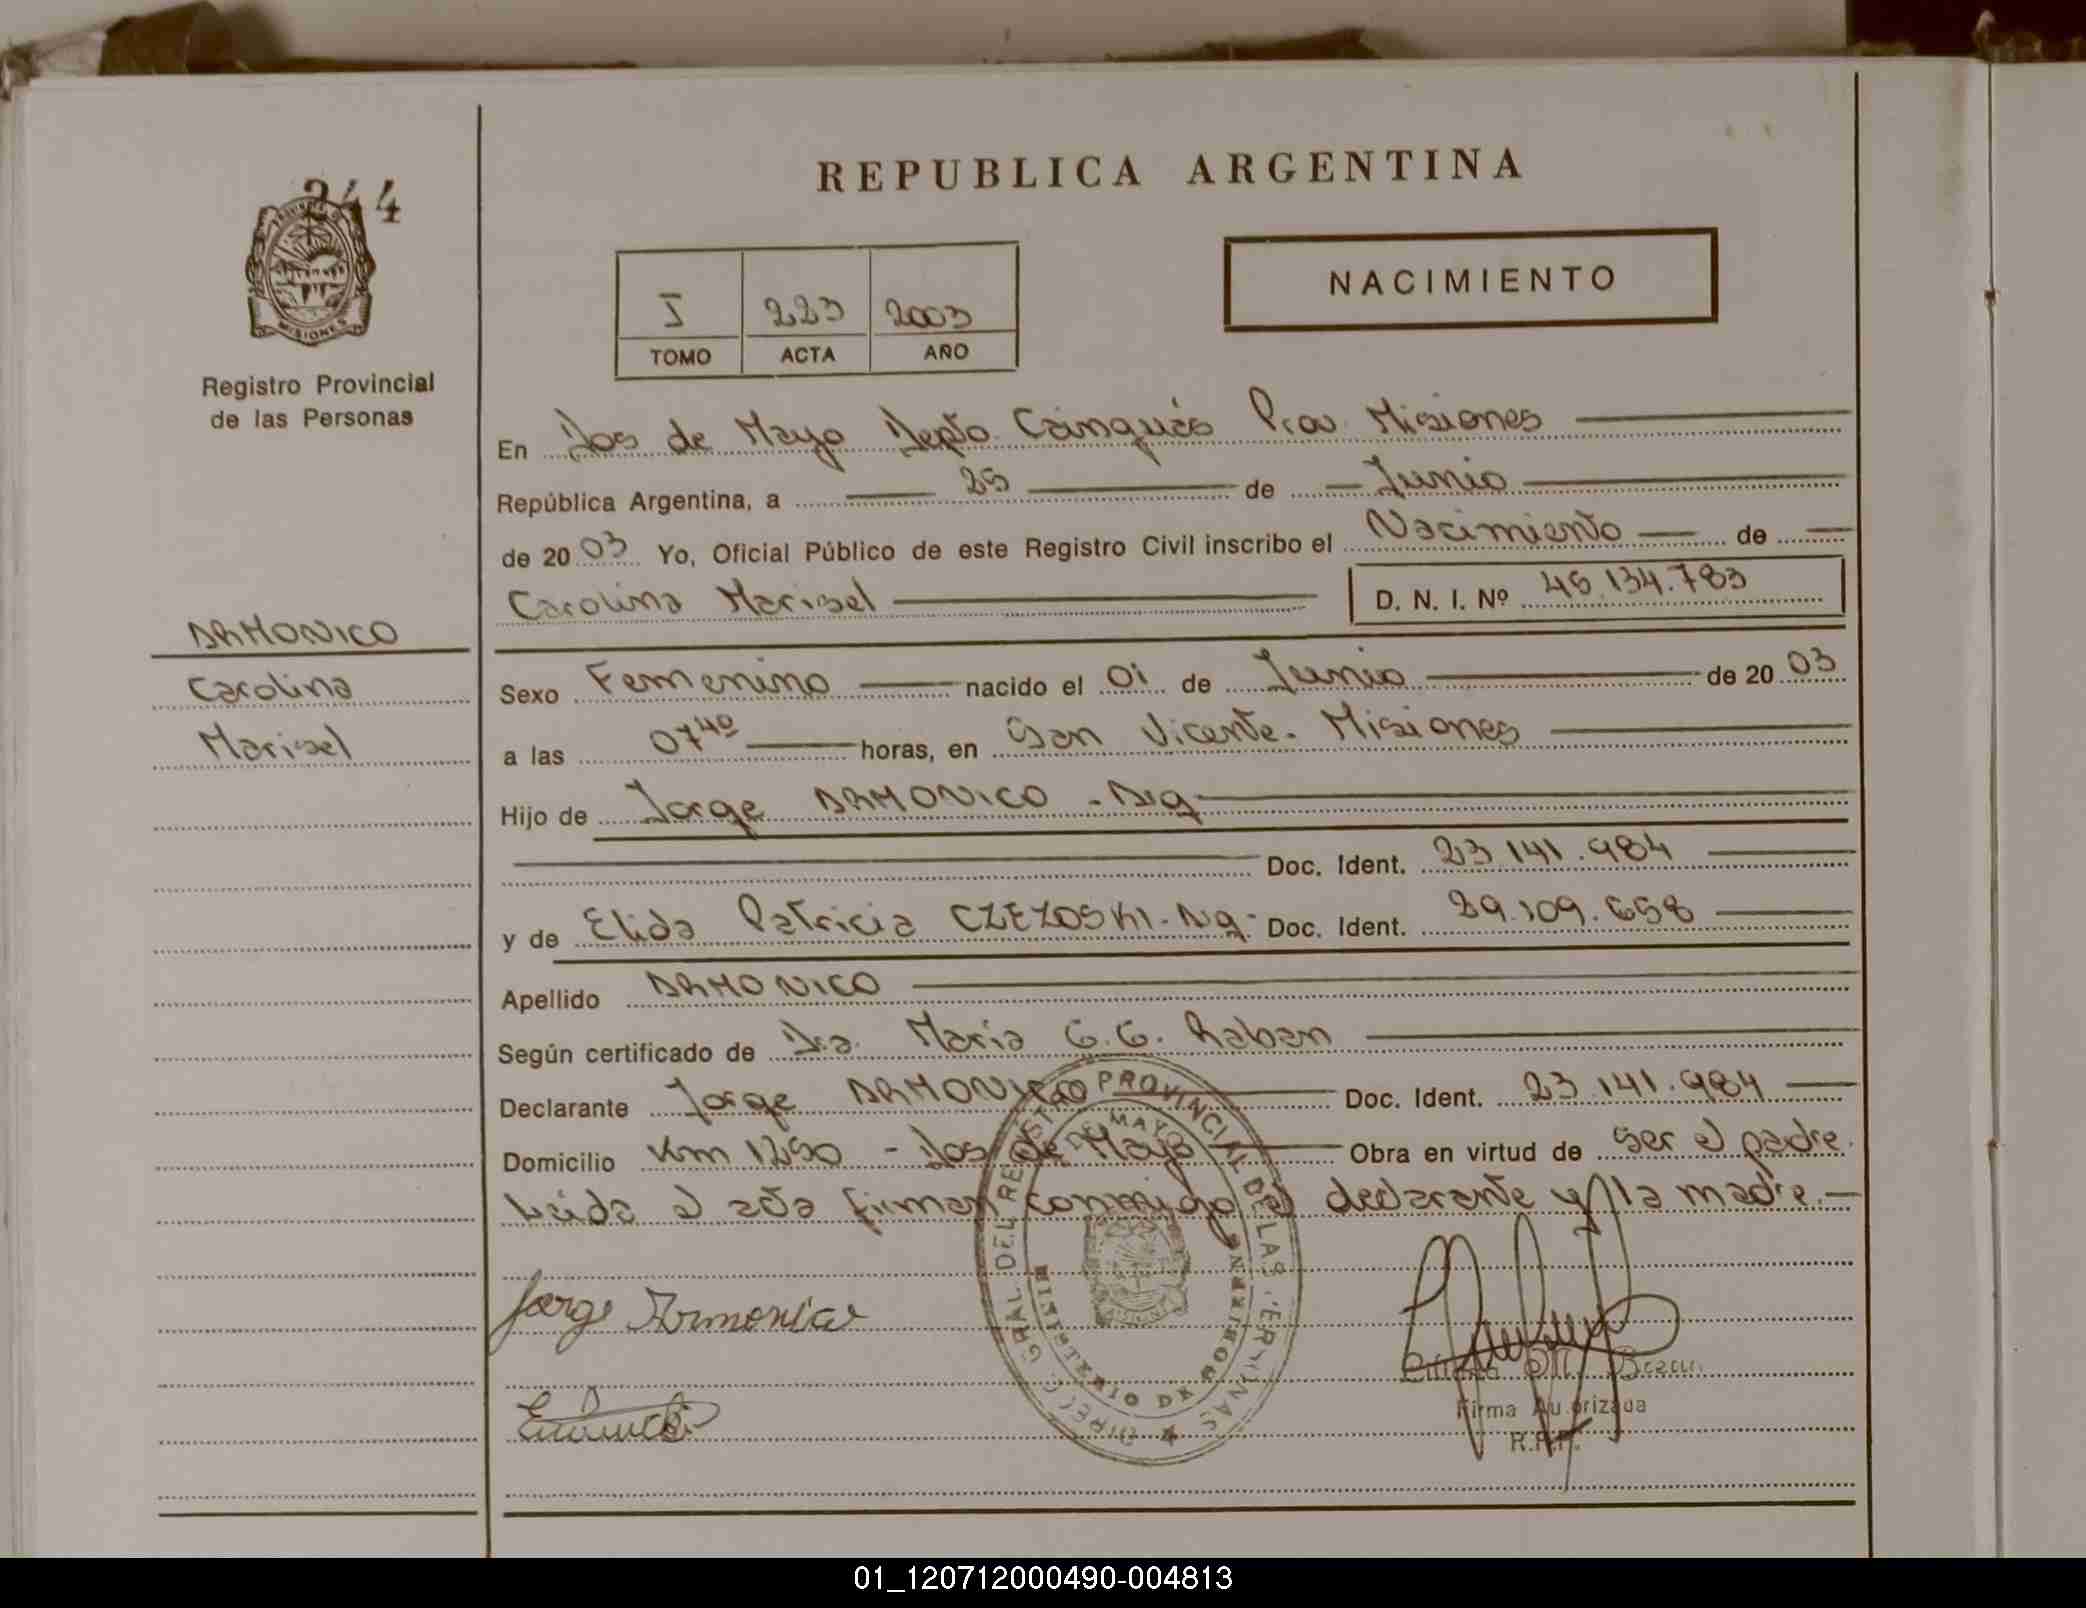 244
REPUBLICA ARGENTINA
NACIMIENTO
I 223 2003
TOMO ACTA AÑO
MISIONES
Registro Provincial
de las Personas
En Dos de Mayo Depto. Cainguás Prov. Misiones
República Argentina, a 25 de Junio
de 2003 Yo, Oficial Público de este Registro Civil inscribo el Nacimiento de
Carolina Marisel D. N. I. Nº 45.134.783
ARMONICO
Carolina
Marisel
Sexo Femenino nacido el 01 de Junio de 2003
a las 07 40 horas, en San Vicente. Misiones
Hijo de Jorge ARMONICO - Arg
Doc. Ident. 23.141.984
y de Elida Patricia CZEZOSKI - Arg. Doc. Ident. 39.109.658
Apellido ARMONICO
Según certificado de Dra. Maria G. G. Raban
Declarante Jorge ARMONICO Doc. Ident. 23.141.984
Domicilio Km 1250 - Dos de Mayo Obra en virtud de ser el padre.
Leida el acta firman conmigo el declarante y la madre.
DIREC. GRAL DEL REGISTRO PROVINCIAL DE LAS PERSONAS
DE MAYO
MINISTERIO DE GOBIERNO
Jorge Armonico
Bazan
Firma Autorizada
R.P.P.
01_120712000490-004813